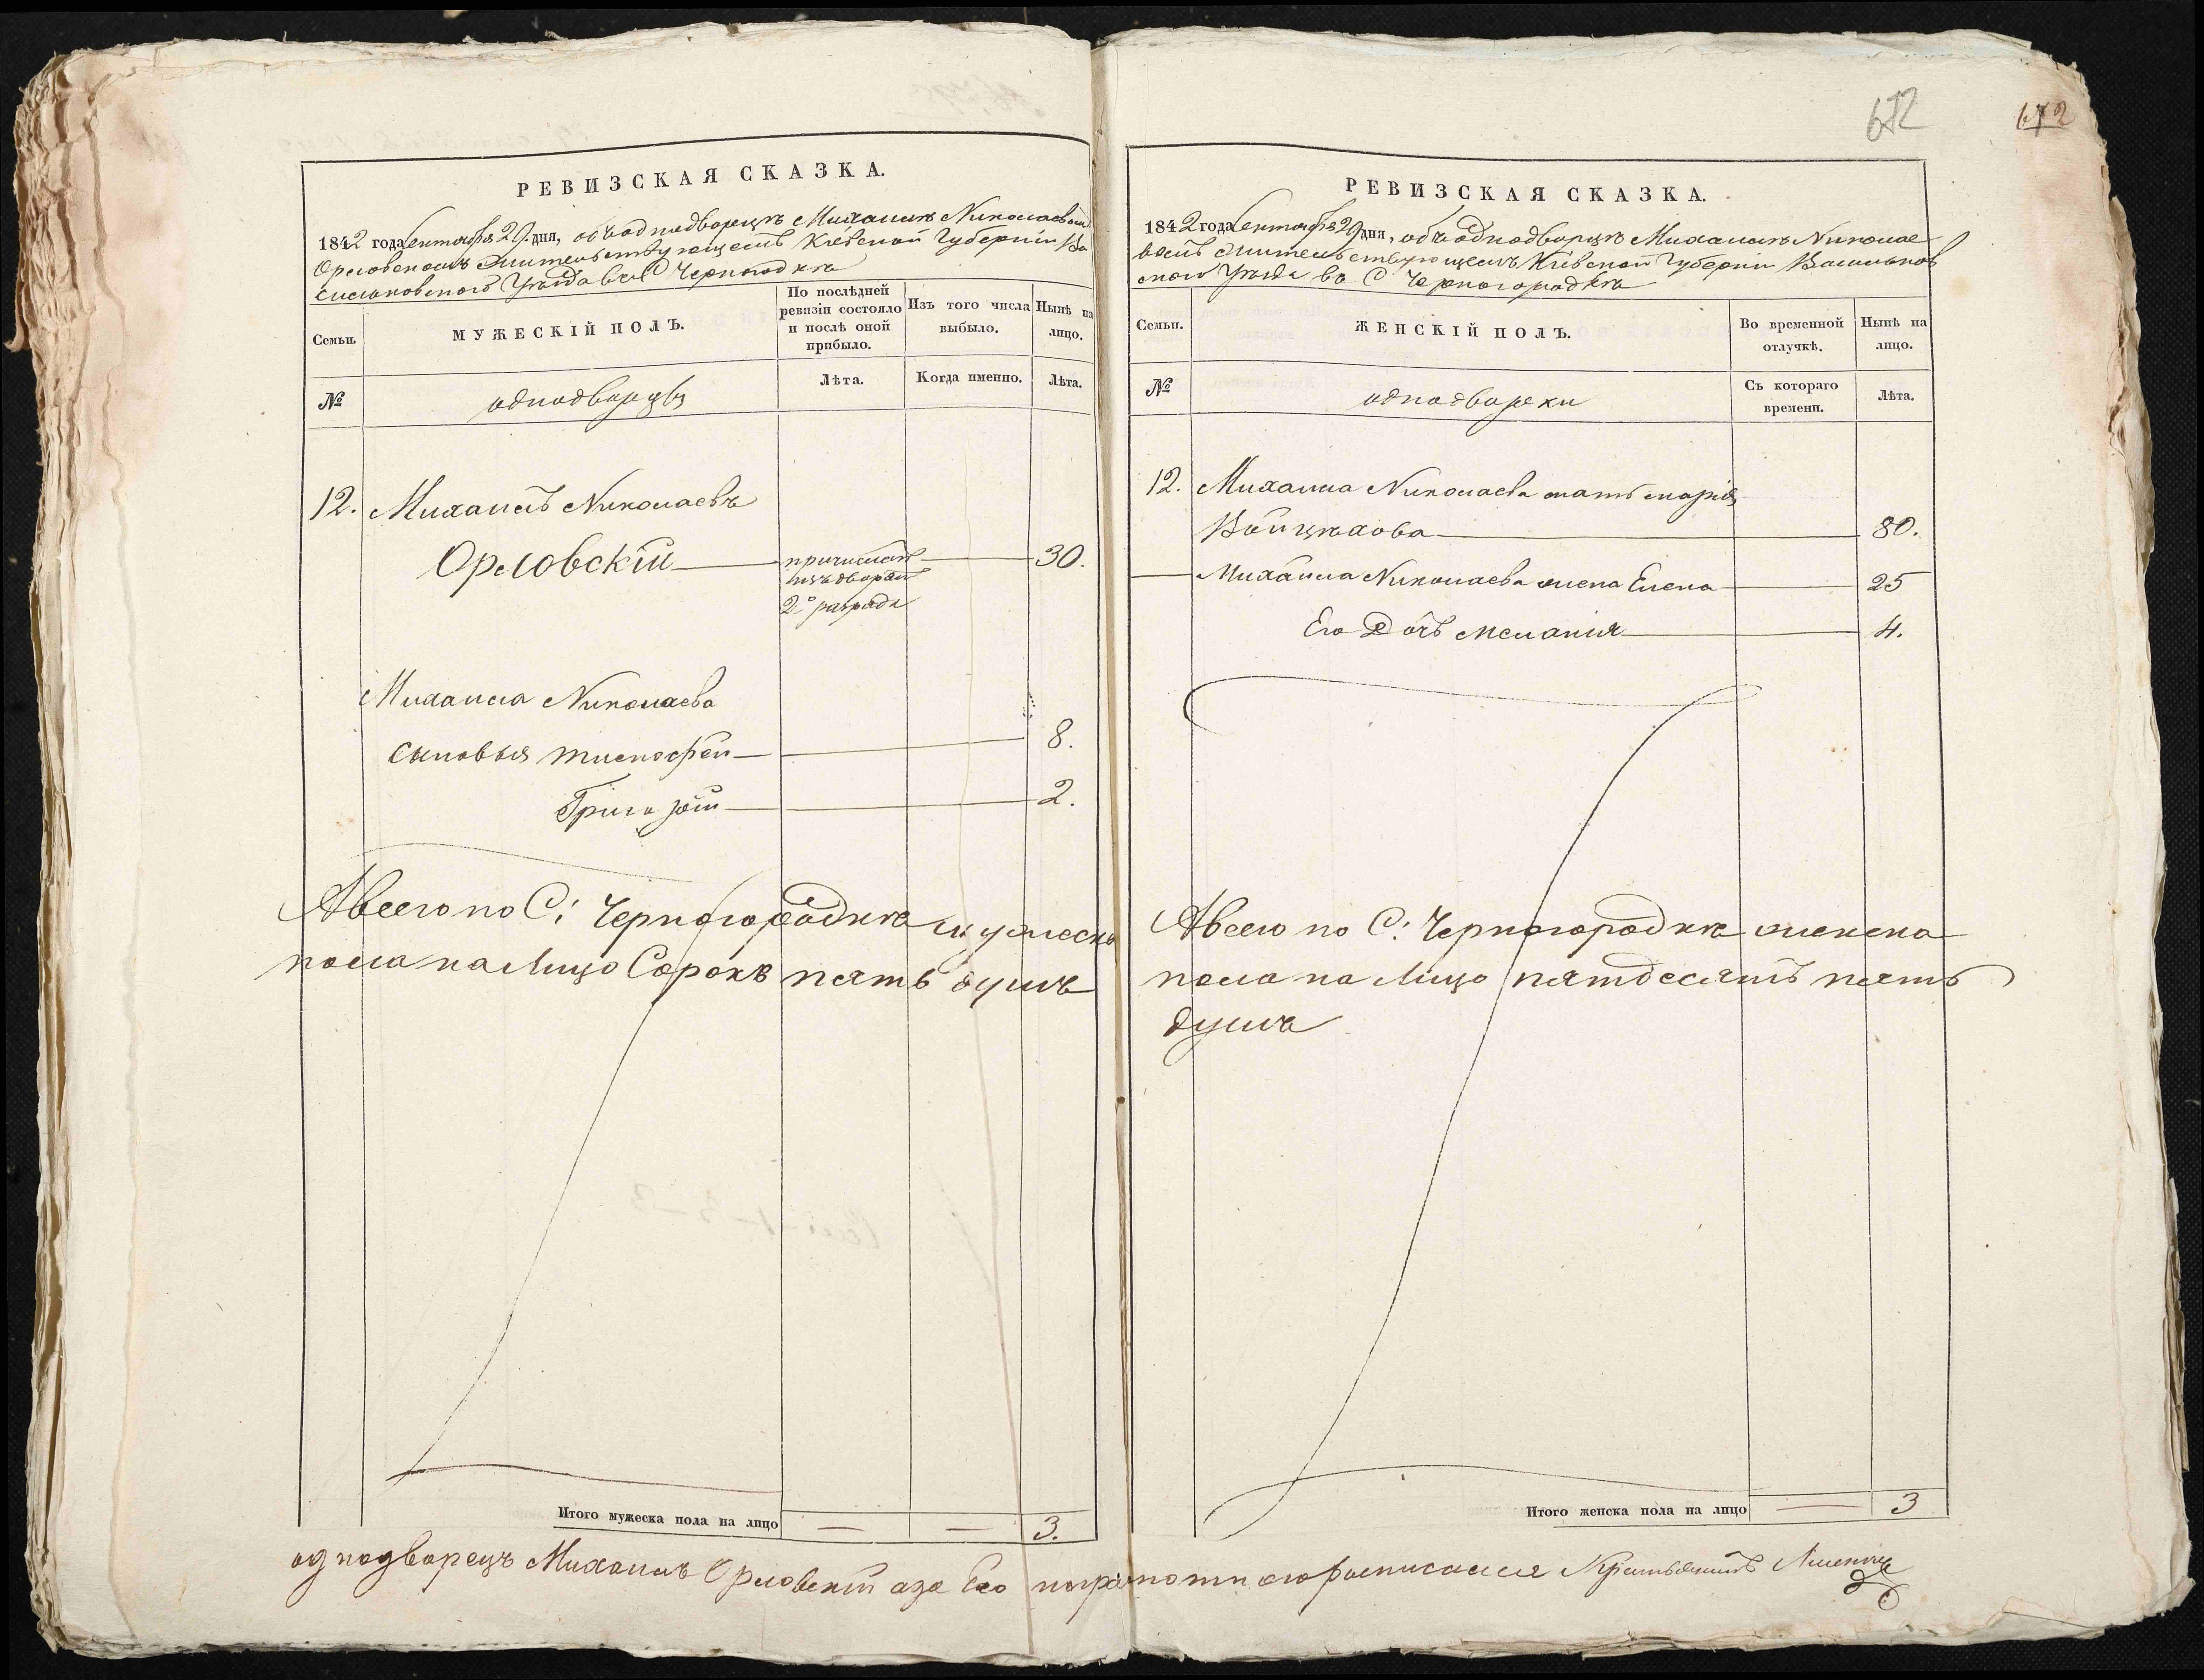 РЕВИЗСКАЯ СКАЗКА.
1842 года Сентября 29. дня, объ однодворцѣ Михаилѣ Николаевомъ
Орловскомъ Жительствующемъ Кіевской Губерніи Ва
сильковского Уѣзда въ С Черногодкѣ
Семьи.
МУЖЕСКІЙ ПОЛЪ.
По послѣдней ревизіи состояло и послѣ оной прибыло.
Изъ того числа выбыло.
Нынѣ на лицо.
№
однодворцы
Лѣта.
Когда именно.
Лѣта.
12. Михаилъ Николаевъ
Орловскій причислен 30.
изъ дворян
2го разряда
Михаила Николаева
Сыновья Тимофей 8.
Григорій 2.
А всего по С: Черногородкѣ мужеска
пола на Лицо Сорокъ пять душъ
Итого мужеска пола на лицо — — 3.
672
672
РЕВИЗСКАЯ СКАЗКА.
1842 года Сентября 29 дня, объ однодворцѣ Михаилѣ Николае
вомъ Жительствующемъ Кіевской Губерніи Васильков
ского Уѣзда въ С Черногородкѣ
Семьи.
ЖЕНСКІЙ ПОЛЪ.
Во временной отлучкѣ.
Нынѣ на лицо.
№
однодворки
Съ котораго времени.
Лѣта.
12. Михаила Николаева мать марія
Войцѣхова 80.
Михаила Николаева жена Елена 25
Его Дочь мелания 4.
А всего по С: Черногородкѣ женска
пола на Лицо пятдесятъ пять
душъ
Итого женска пола на лицо — 3
однодворецъ Михаилъ Орловскій а за Его неграмотностю росписался